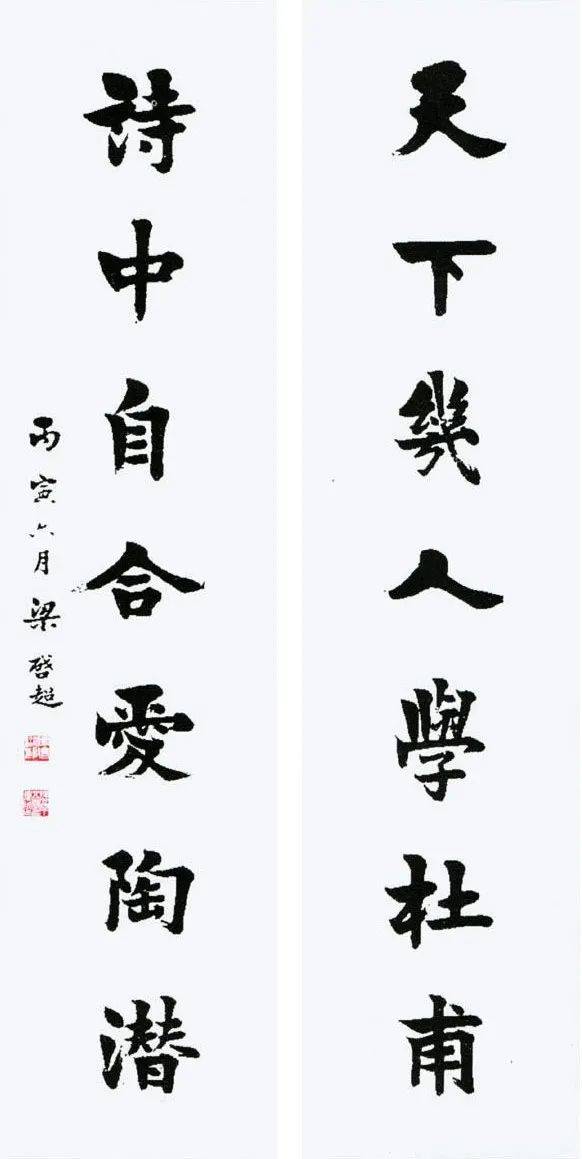 天下幾人學杜甫
詩中自合愛陶潛
丙寅六月梁啓超